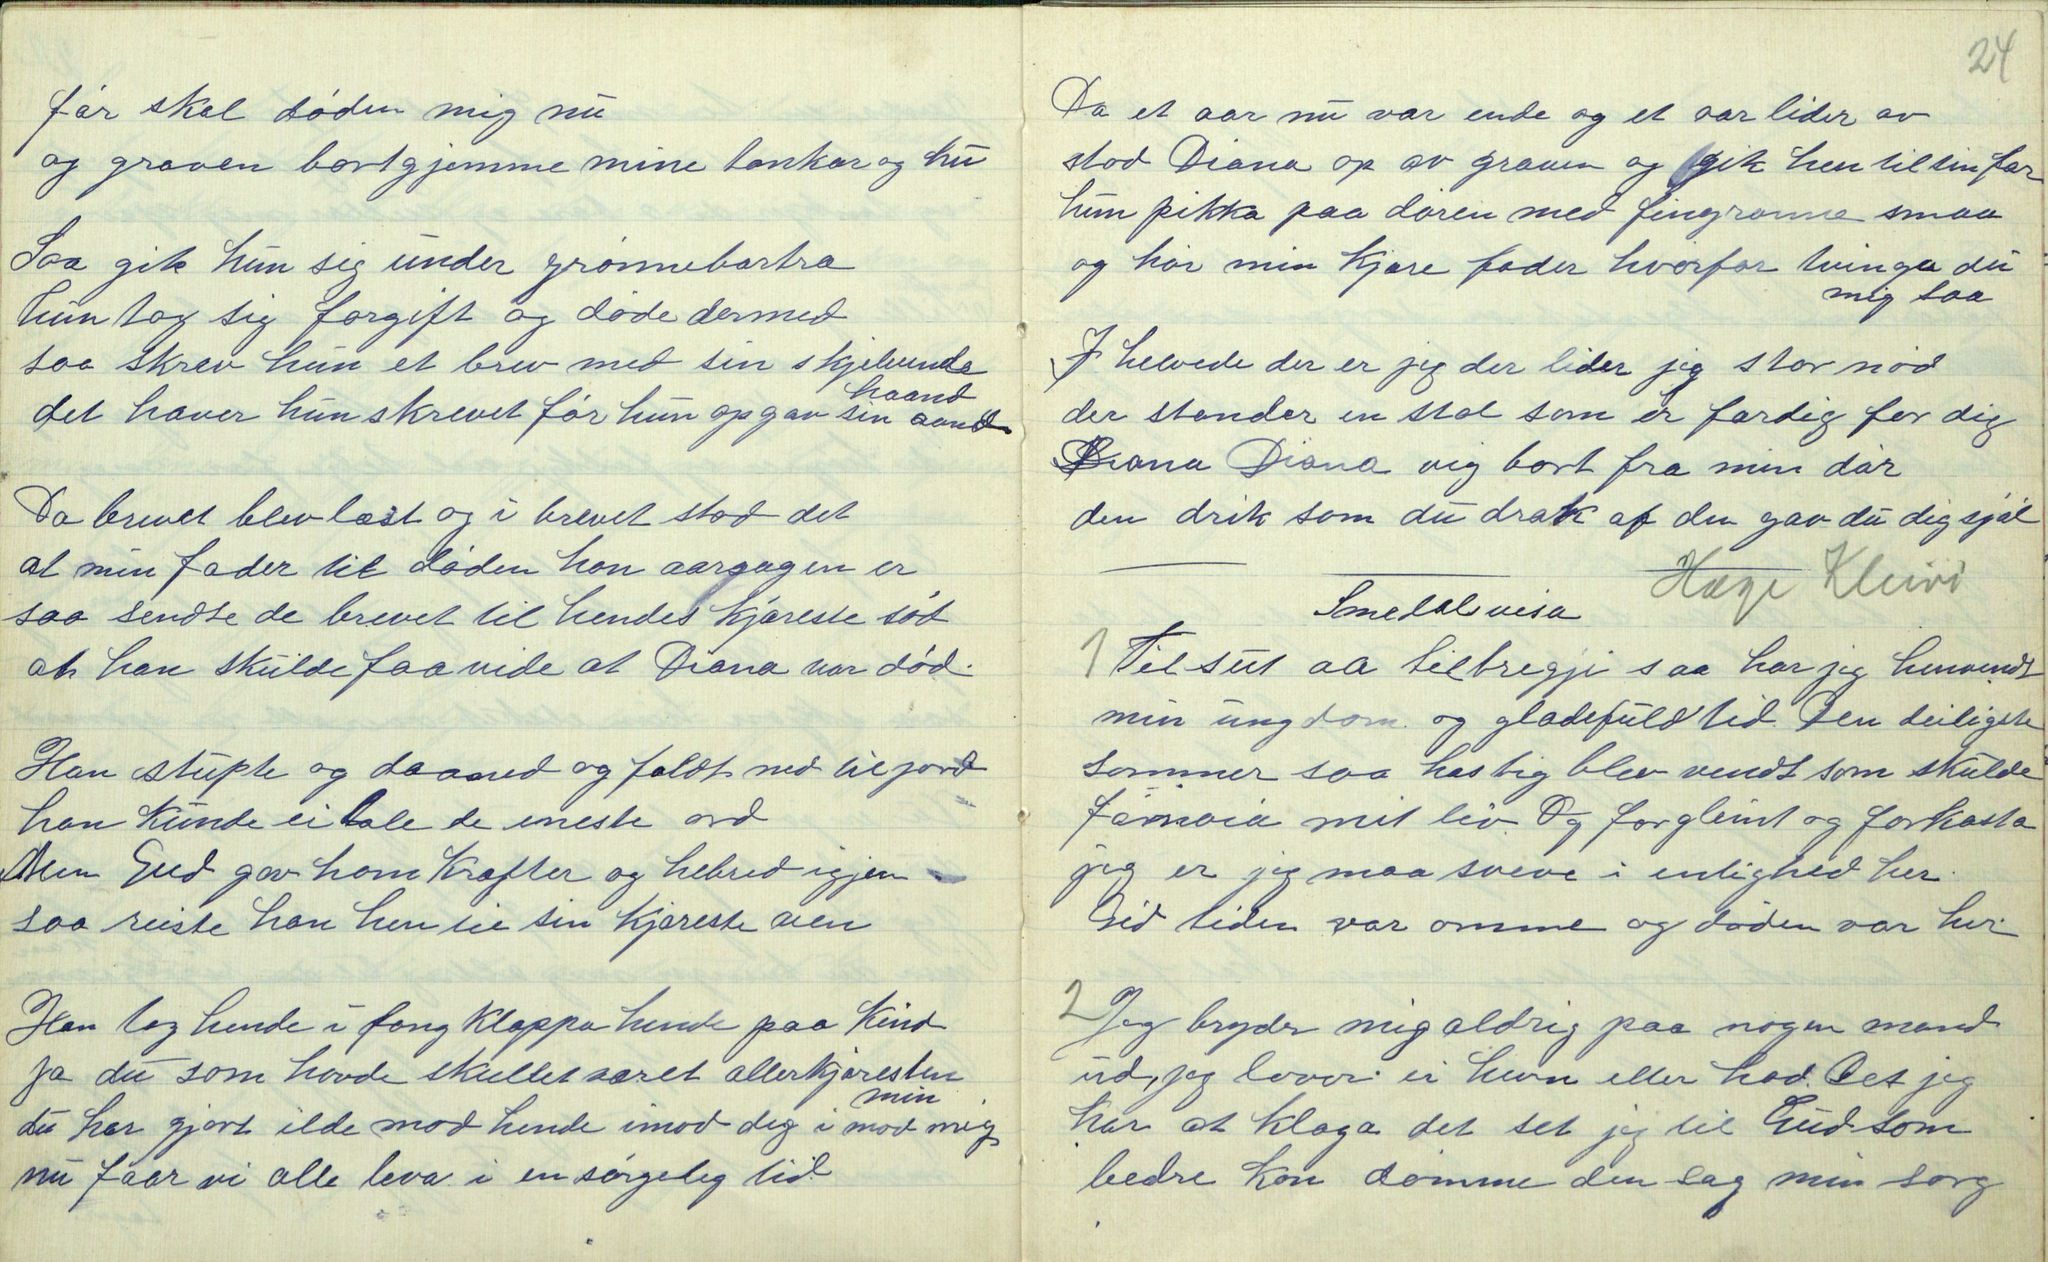 før skal døden mig nu
og graven bortgjemme mine tankar og hu
Saa gik hun sig under grønnebartra
hun tog sig forgift og døde dermed
saa skrev hun et brev med sin skjelvende
haand
det haver hun skrevet før hun opgav sin aand
Da brevet blev læst og i brevet stod det
at min fader til døden han aarsagen er
saa sendte de brevet til hendes kjæreste sød
at han skulde faa vide at Diana var død.
Han stupte og daaned og faldt ned til jord
han kunde ei tale de eneste ord
Men Gud gav ham kræfter og helred igjen
saa reiste han hen til sin kjæreste ven
Han tog hende i fang klappa hende paa kind
Ja du som havde skullet været allerkjæresten
min
du har gjort ilde mod hende imod dig i mod mig
nu faar vi alle leva i en sørgelig tid
24
Da et aar nu var ende og et aar lider av
stod Diana op av graven og gik hen til sin far
hun pikka paa døren med fingranne smaa
og hør min kjære fader hvorfor tvinga du
mig saa
I helvede der er jeg der lider jeg stor nød
der stander en stol som er færdig for dig
Diana Diana vig bort fra min dør
den drik som du drak af den gav du dig sjøl
Hæge Kleivi
Smedalsvisa
1 Til sut aa tilbregji saa har jeg henvendt
min ungdom og gladefuld tid. Den deiligste
sommer saa hastig blev vendt som skulde
fornøia mit liv. Og forglemt og forkasta
jeg er jeg maa sveve i enlighed her.
Gid tiden var omme og døden var her.
2 Jeg bryder mig aldrig paa nogen mand
ud, jeg lover ei hevn eller had. Det jeg
har at klaga det set jeg til Gud som
bedre kan dømme den sag min sorg